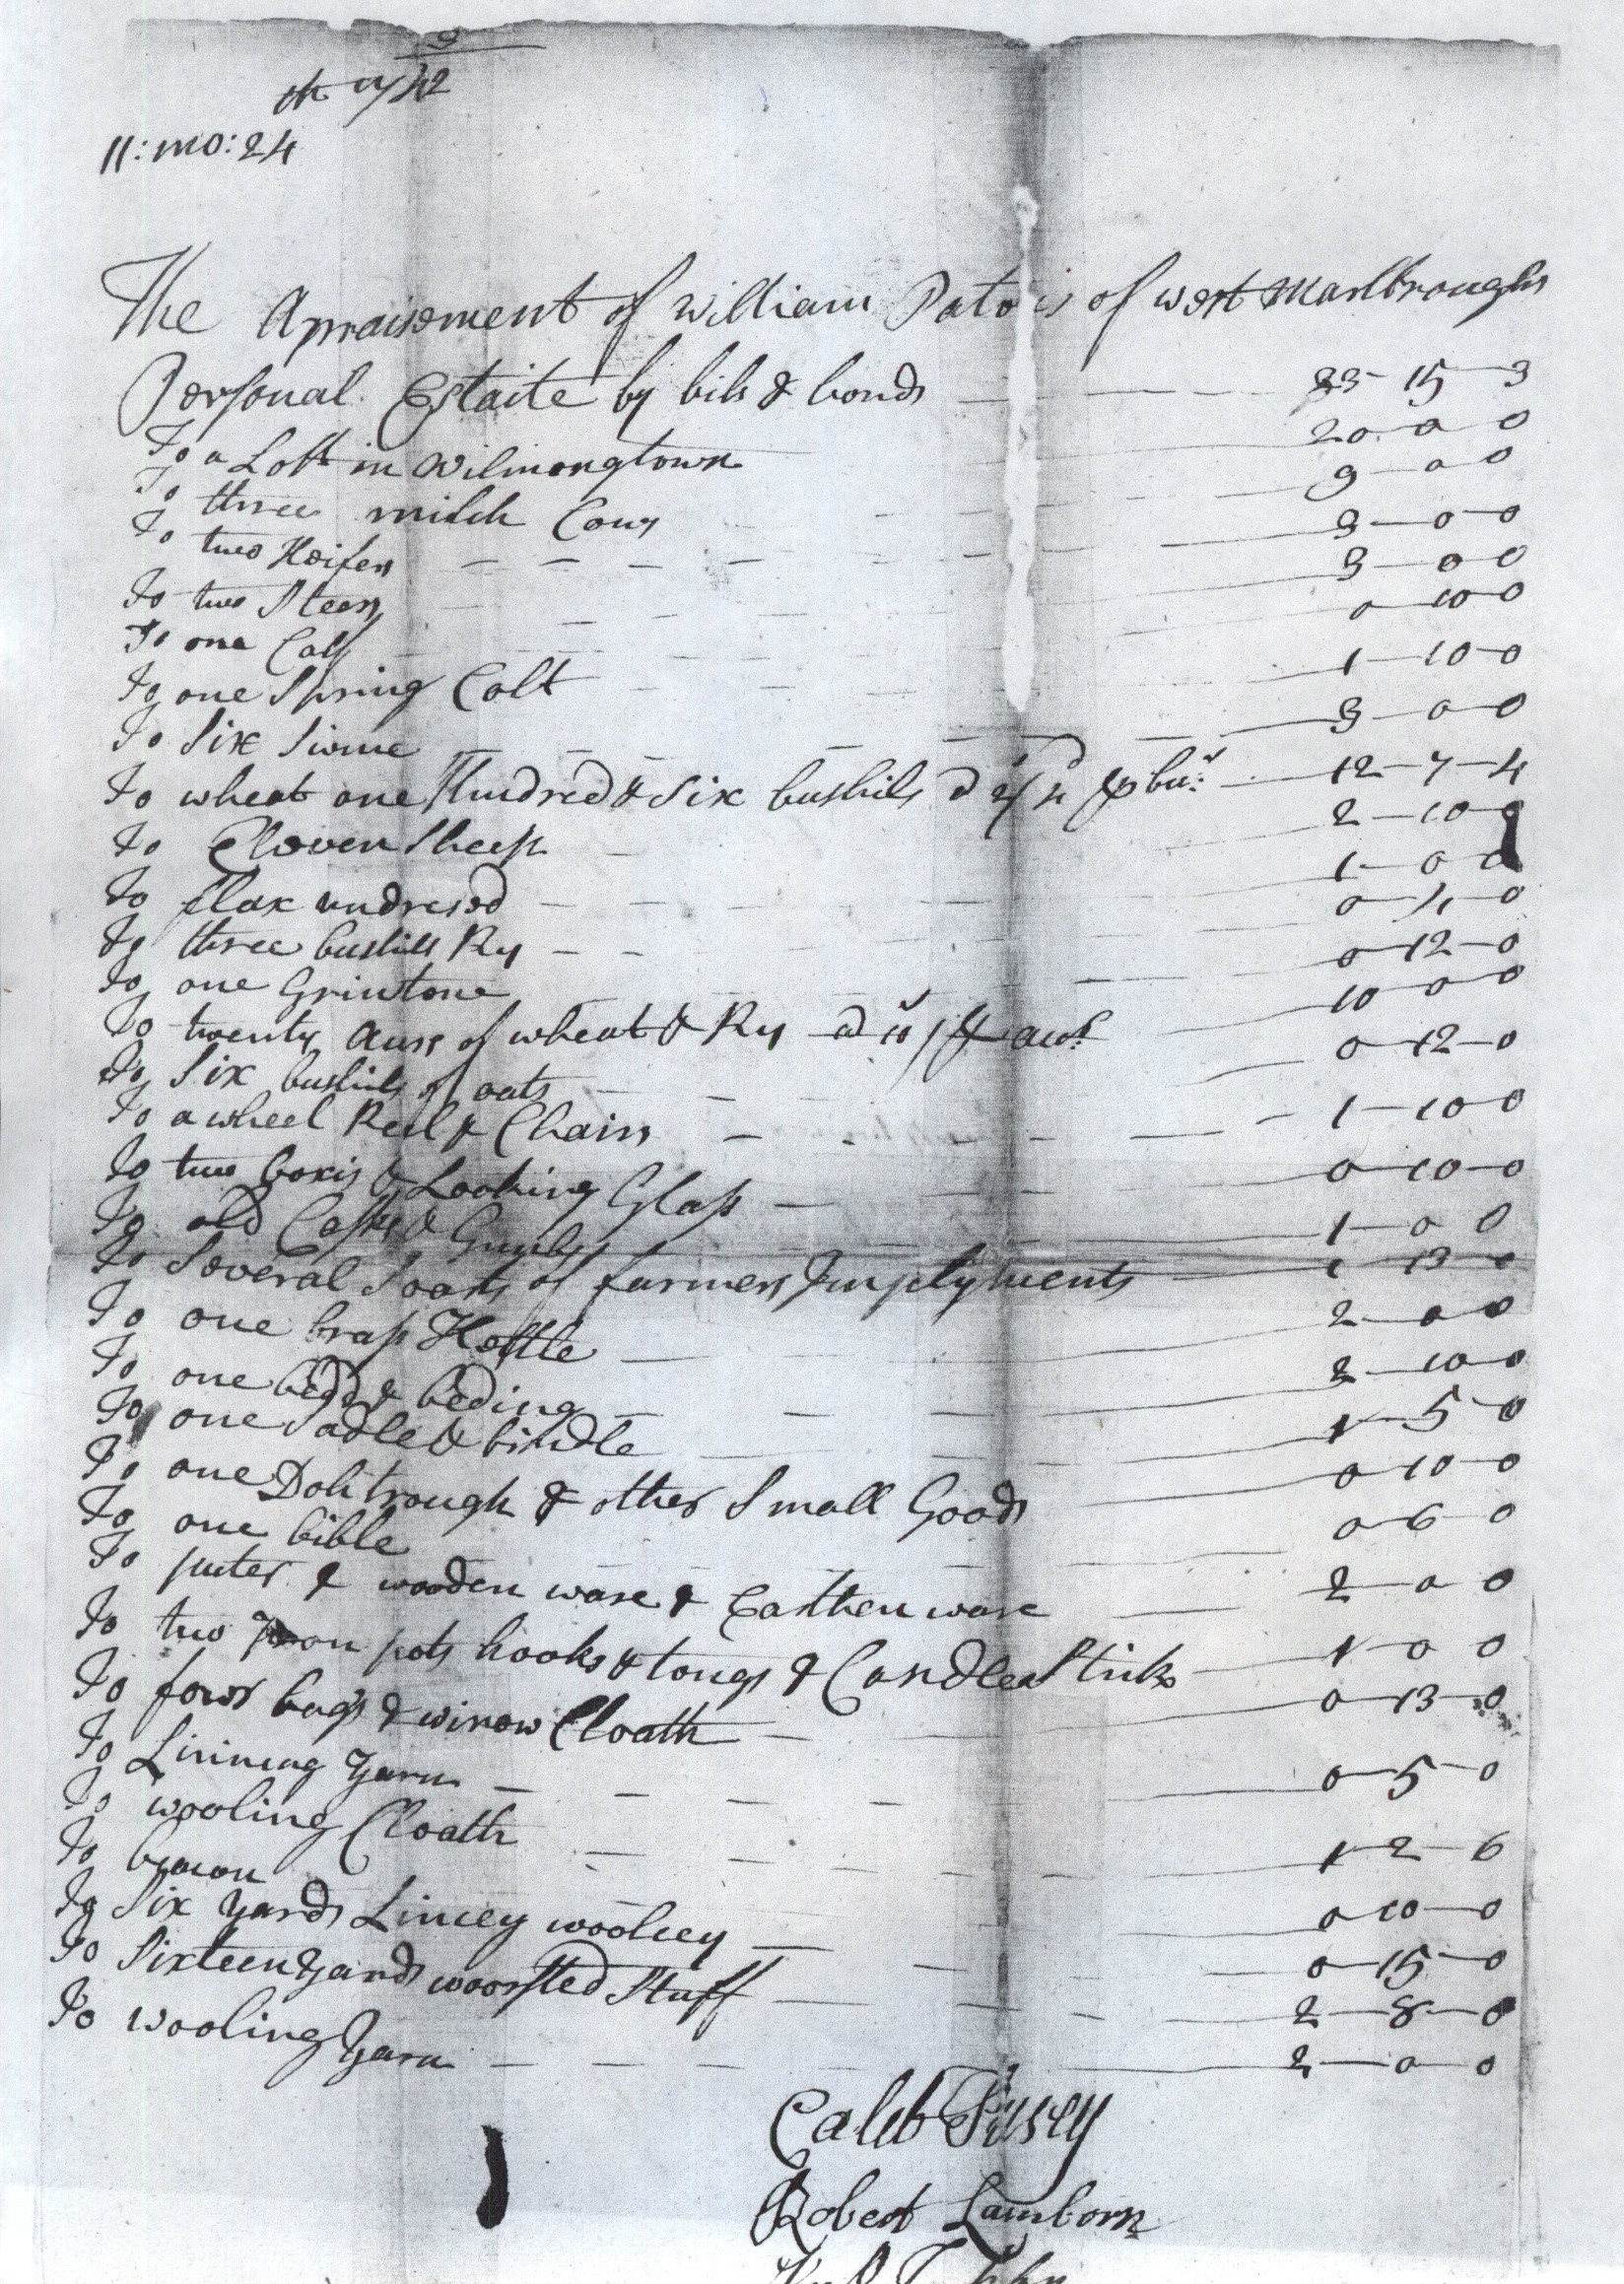 11: mo: 24
The Apraisement of William Pato is of west Marlbrough
Personal Estaite by bils & bonds 23 - 15 - 3
To a Lott in Wilmongtown 20 - 0 - 0
To three milch Cows 9 - 0 - 0
To two Heifers 3 - 0 - 0
To two Steers 3 - 0 - 0
To one Calf 0 - 10 - 0
To one Spring Colt 1 - 10 - 0
To Six Swine 3 - 0 - 0
To wheat one Hundred & Six bushils 12 - 7 - 4
To Eleven Sheep 2 - 10 - 0
To flax undresed 1 - 0 - 0
To three bushils Ry 0 - 0
To one Grintone 0 - 12 - 0
To twenty of wheat & Ry 10 - 0 - 0
To Six bushils of oats 0 - 12 - 0
To a wheel Reel & Chairs 1 - 10 - 0
To two boxis & Looking Glass 0 - 10 - 0
To old Casks & 1 - 0 - 0
To Several Soarts of farmers Implyments 1 - 13 - 0
To one brass Kettle 2 - 0 - 0
To one bedd & beding 2 - 10 - 0
To one Sadle & bridle 1 - 5 - 0
To one Dohtrough & other Small Goods 0 - 10 - 0
To one bible 0 - 6 - 0
To puter & wooden ware & Earthen ware 2 - 0 - 0
To two Iron pots hooks & tongs & Candlesticks 1 - 0 - 0
To fowr bags & winow Cloath 0 - 13 - 0
To Lininng yarn 0 - 5 - 0
To wooling Cloath 1 - 2 - 6
To 0 - 10 - 0
To Six yards Lincey woolcey 0 - 15 - 0
To Sixteen yards woorsted Stuff 2 - 8 - 0
To wooling yarn 2 - 0 - 0
Caleb Pusey
Robert Lamborn